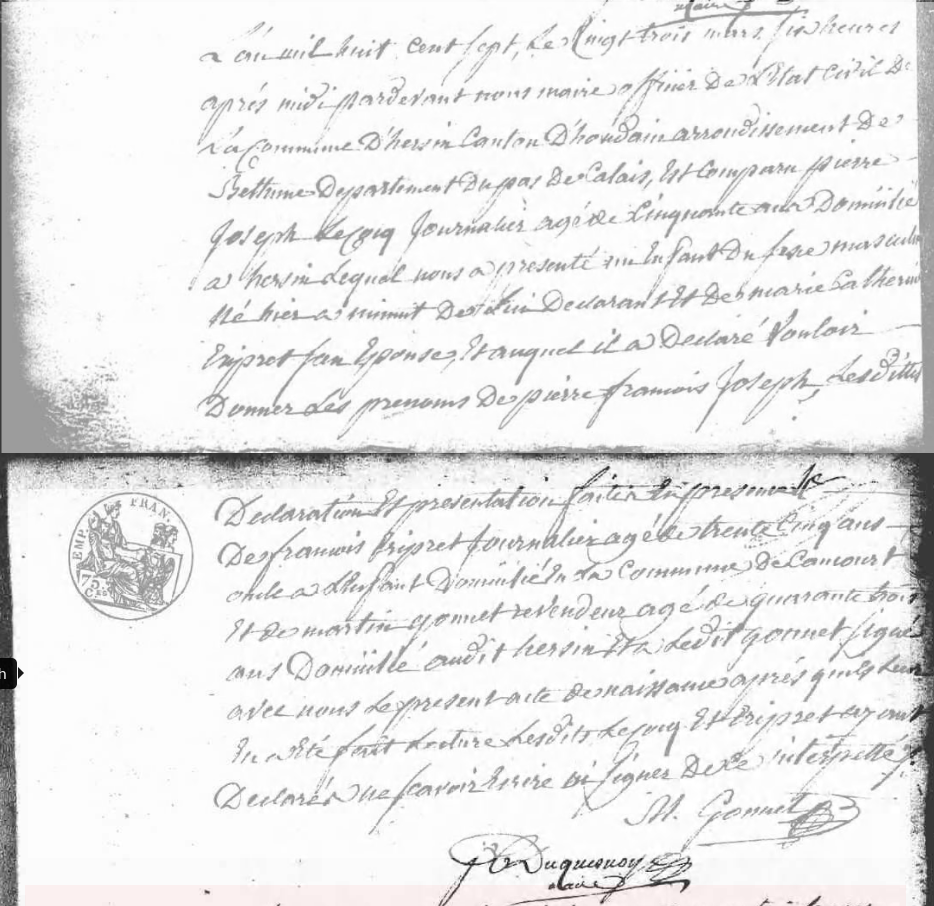 maire
L'an mil huit cent sept, Le Vingt trois mars, six heures
après midi pardevant nous maire officier De L'Etat Civil De
La Commune D'hersin Canton D'houdain arrondissement De
Bethune Departement Du pas De Calais, Est Comparu pierre
Joseph Lecocq Journalier agé de Cinquante ans Domicilié
a hersin Lequel nous a presenté un Enfant Du sexe masculin
né hier a minuit De Lui Declarant Et De marie Catherine
Eripret san Epouse, Et auquel il a Declaré Vouloir
Donner Les prenoms De pierre francois Joseph, Lesdittes
Declaration Et presentation faites En presence
De francois Eripret Journalier agé de trente Cinq ans
EMP. FRAN.
75 C.
oncle a L'Enfant Domicilié En La Commune De Camourt
Et De martin gonnet revendeur agé de quarante trois
ans Domicilié audit hersin Et a Ledit gonnet signé
avec nous Le present acte de naissance après qu'ils Leur
En a Eté fait Lecture Lesdits Lecocq Et Eripret ayant
Declarés ne scavoir Ecrire ni signer De Ce interpellés
M. Gonnet
Duquesnoy
maire
h